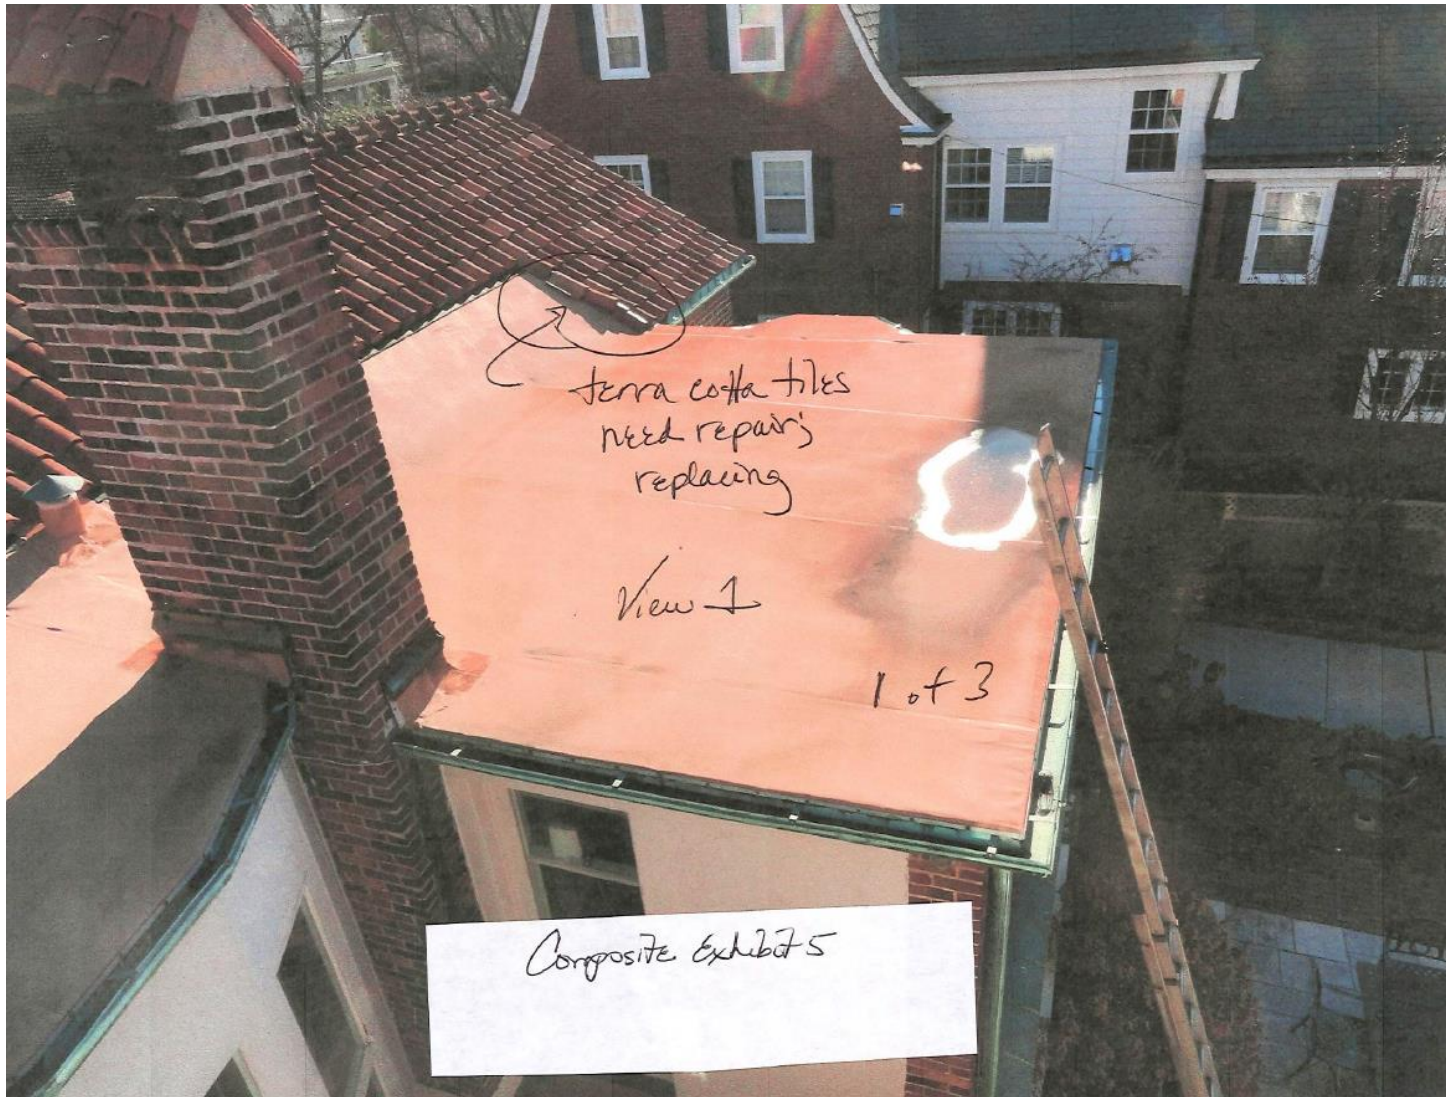 terra cotta tiles
need repair;
replacing
View 1
1 of 3
Composite Exhibit 5